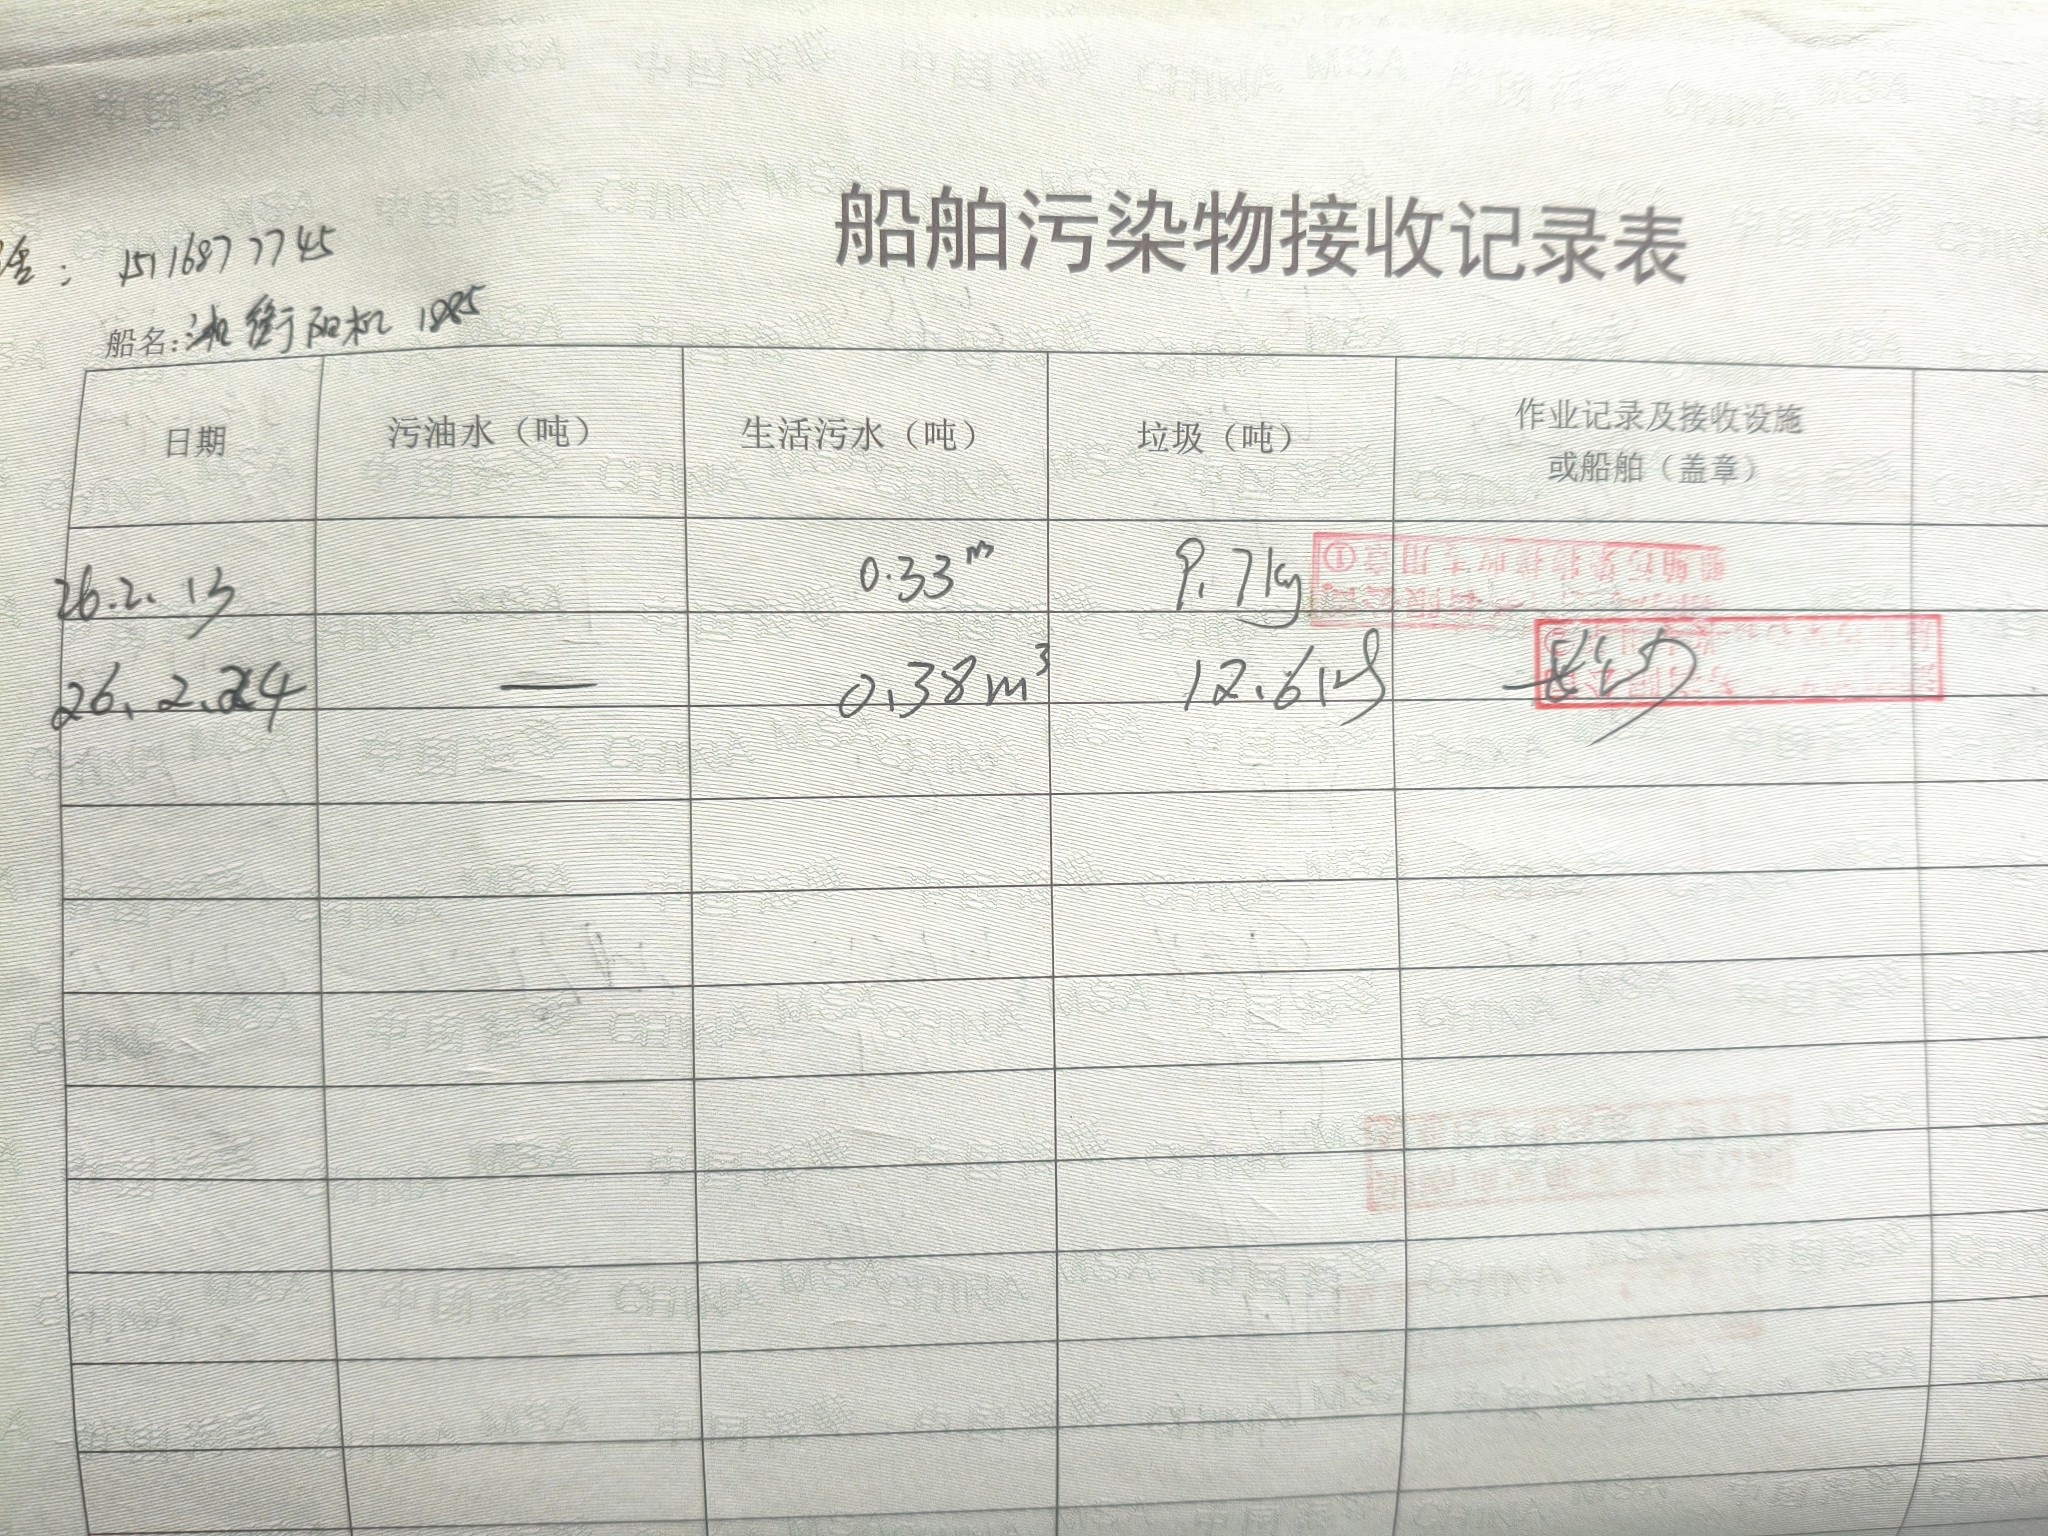 船舶污染物接收记录表
: 15116877745
船名:湘衡阳机 1885
日期 污油水（吨） 生活污水（吨） 垃圾（吨） 作业记录及接收设施
或船舶（盖章）
26.2.13 0.33m 9.7kg
26.2.24 — 0.38m³ 12.61kg 长沙
中国海事 CHINA MSA